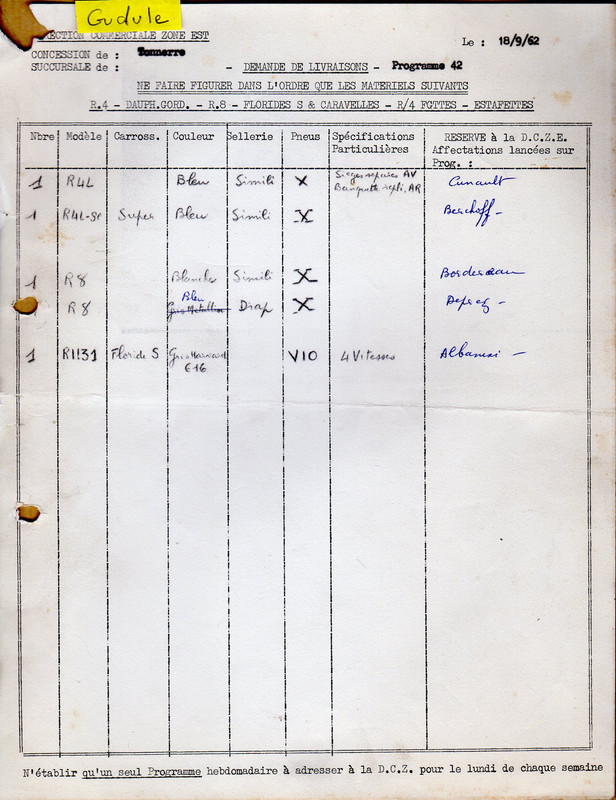 Gudule
DIRECTION COMMERCIALE ZONE EST
Le : 18/9/62
CONCESSION de : Tonnerre
SUCCURSALE de : - DEMANDE DE LIVRAISONS - Programme 42
NE FAIRE FIGURER DANS L'ORDRE QUE LES MATERIELS SUIVANTS
R.4 - DAUPH.GORD. - R.8 - FLORIDES S & CARAVELLES - R/4 FGTTES - ESTAFETTES
Nbre Modèle Carross. Couleur Sellerie Pneus Spécifications Particulières RESERVE à la D.C.Z.E. Affectations lancées sur Prog. :
1 R4L Bleu Simili X Sieges separes AV Banquette repli. AR Cunault
1 R4L-se Super Bleu Simili X Berchoff -
1 R8 Blanche Simili X Bordereau
R8 Bleu Gris Metallisé Drap X Deprez -
1 R1131 Floride S Gris 616 V10 4 Vitesses Albanesi -
N'établir qu'un seul Programme hebdomadaire à adresser à la D.C.Z. pour le lundi de chaque semaine